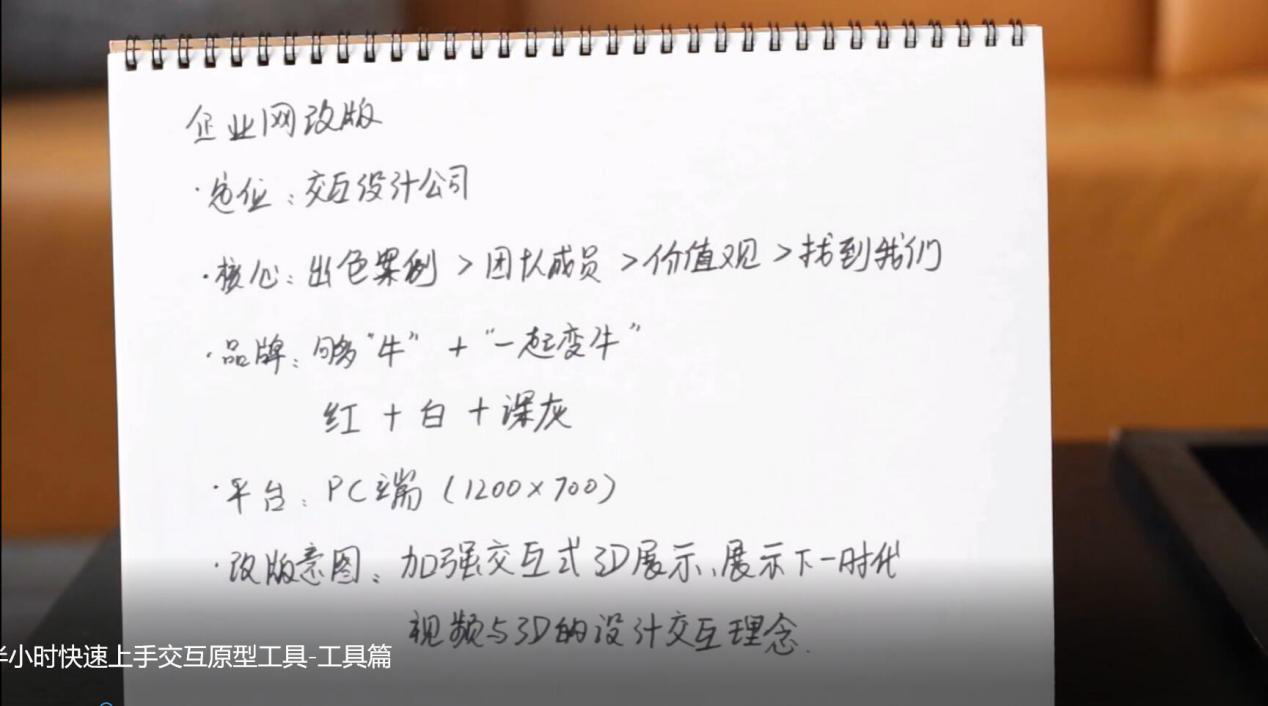 企业网改版
·定位：交互设计公司
·核心：出色案例 > 团队成员 > 价值观 > 找到我们
·品牌：够“牛” + “一起变牛”
红 + 白 + 深灰
·平台：PC端（1200×700）
·改版意图：加强交互式3D展示、展示下一时代
视频与3D的设计交互理念.
半小时快速上手交互原型工具-工具篇